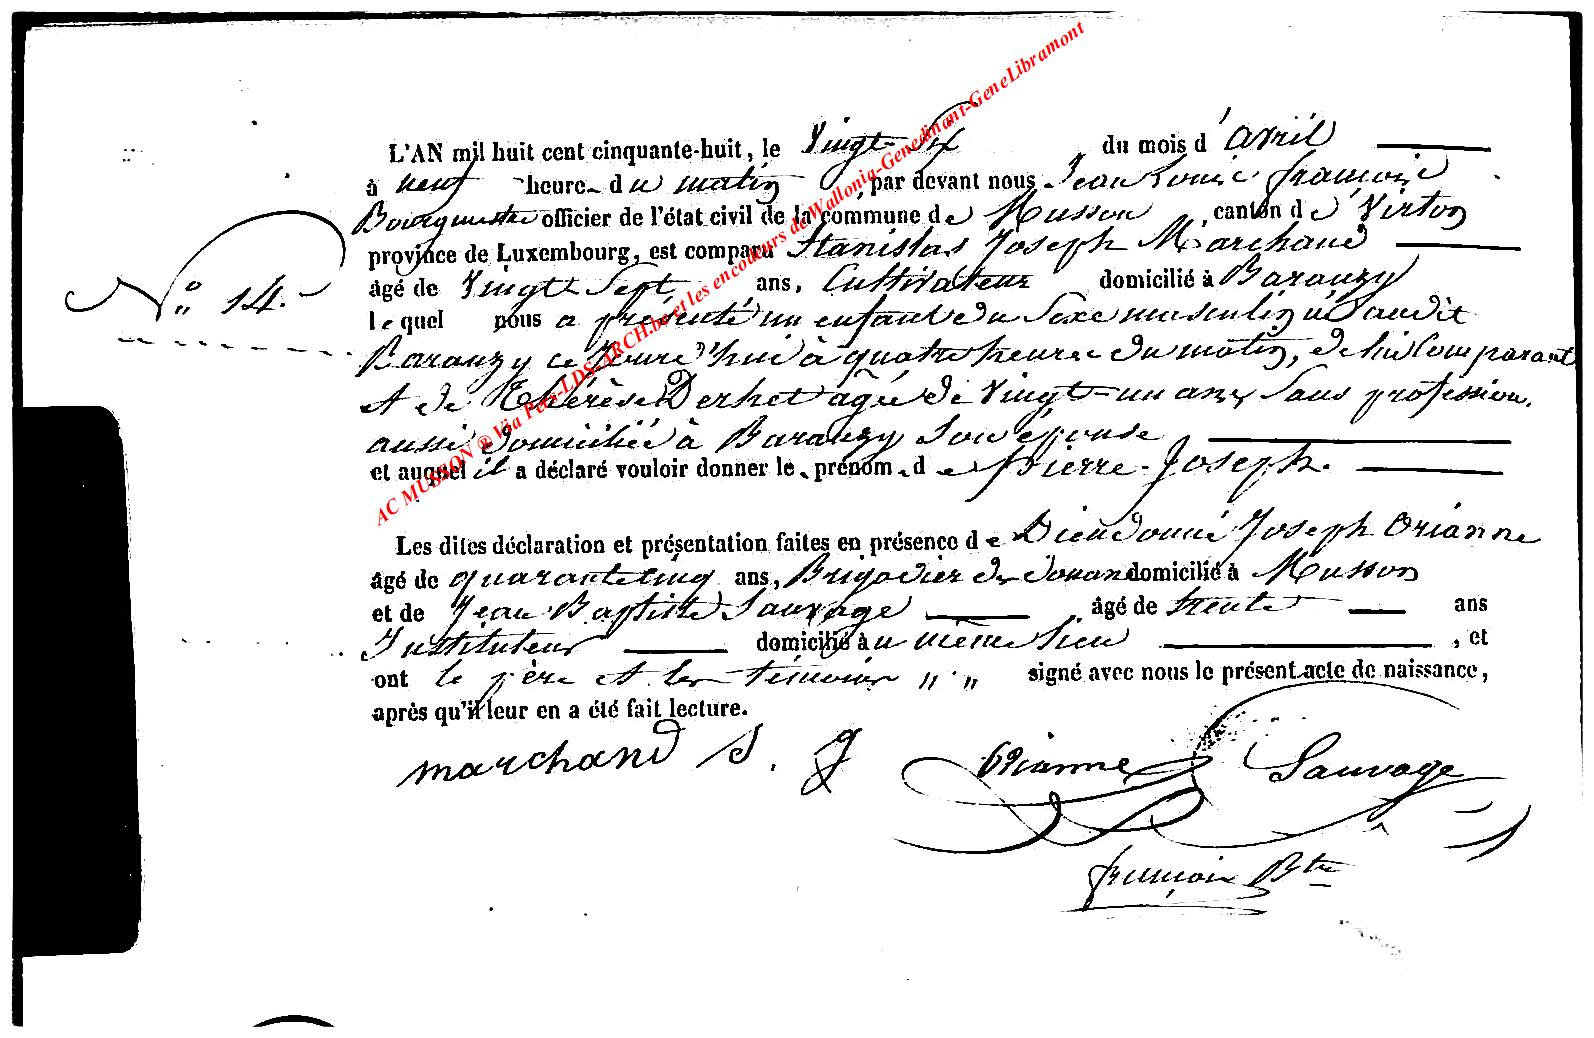 L'AN mil huit cent cinquante-huit, le Vingt-Six du mois d'avril
à neuf heure du matin par devant nous Jean Louis françois
Bourgmestre officier de l'état civil de la commune de Musson canton de Virton
province de Luxembourg, est comparu Stanislas Joseph Marchand
âgé de Vingt Sept ans, Cultivateur domicilié à Baranzy
lequel nous a présenté un enfant du Sexe masculin né audit
N° 14.
Baranzy ce jourd'hui à quatre heures du matin, de lui Comparant
et de Thérèse Derhet agée de Vingt-un ans, Sans profession,
aussi domiciliée à Baranzy Son épouse
et auquel il a déclaré vouloir donner le prénom de Pierre-Joseph.
Les dites déclaration et présentation faites en présence de Dieudonné Joseph Orianne
âgé de quarante cinq ans, Brigadier de douane domicilié à Musson
et de Jean Baptiste Sauvage âgé de trente ans
Instituteur domicilié au même lieu , et
ont le père et les témoins " " signé avec nous le présent acte de naissance,
après qu'il leur en a été fait lecture.
marchand S. J
Orianne Sauvage
françois Btre
AC MUSSON ® Via Pev-LDS-ARCH.be et les encodeurs de Wallonia-Genedinant-GeneLibramont